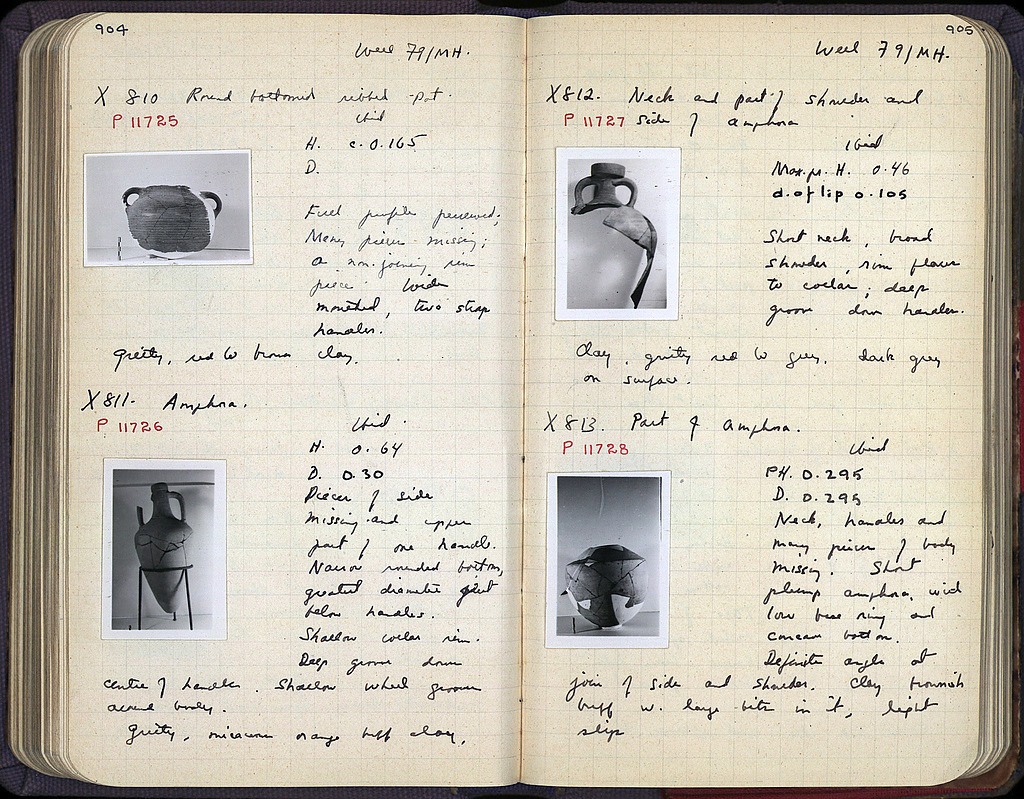 904
Well 79/MH.
X 810 Round bottomed ribbed pot.
P 11725
Ibid
H. c. 0.165
D.
Full profile preserved;
Many pieces missing;
a non-joining rim
piece. Wide
mouthed, two strap
handles.
Gritty, red to brown clay.
X 811. Amphora.
P 11726
Ibid.
H. 0.64
D. 0.30
Pieces of side
missing and upper
part of one handle.
Narrow rounded bottom,
greatest diameter just
below handles.
Shallow collar rim.
Deep groove down
centre of handles. Shallow wheel grooves
around body.
Gritty, micaceous orange buff clay.
905
Well 79/MH.
X 812. Neck and part of shoulder and
P 11727 side of amphora
Ibid
Max. pr. H. 0.46
d. of lip 0.105
Short neck, broad
shoulder, rim flares
to collar; deep
groove down handles.
Clay, gritty red to grey, dark grey
on surface.
X 813. Part of amphora.
P 11728
Ibid
PH. 0.295
D. 0.295
Neck, handles and
many pieces of body
missing. Short
plump amphora, with
low base ring and
concave bottom.
Definite angle at
join of side and shoulder. Clay brownish
buff w. large bits in it, light
slip